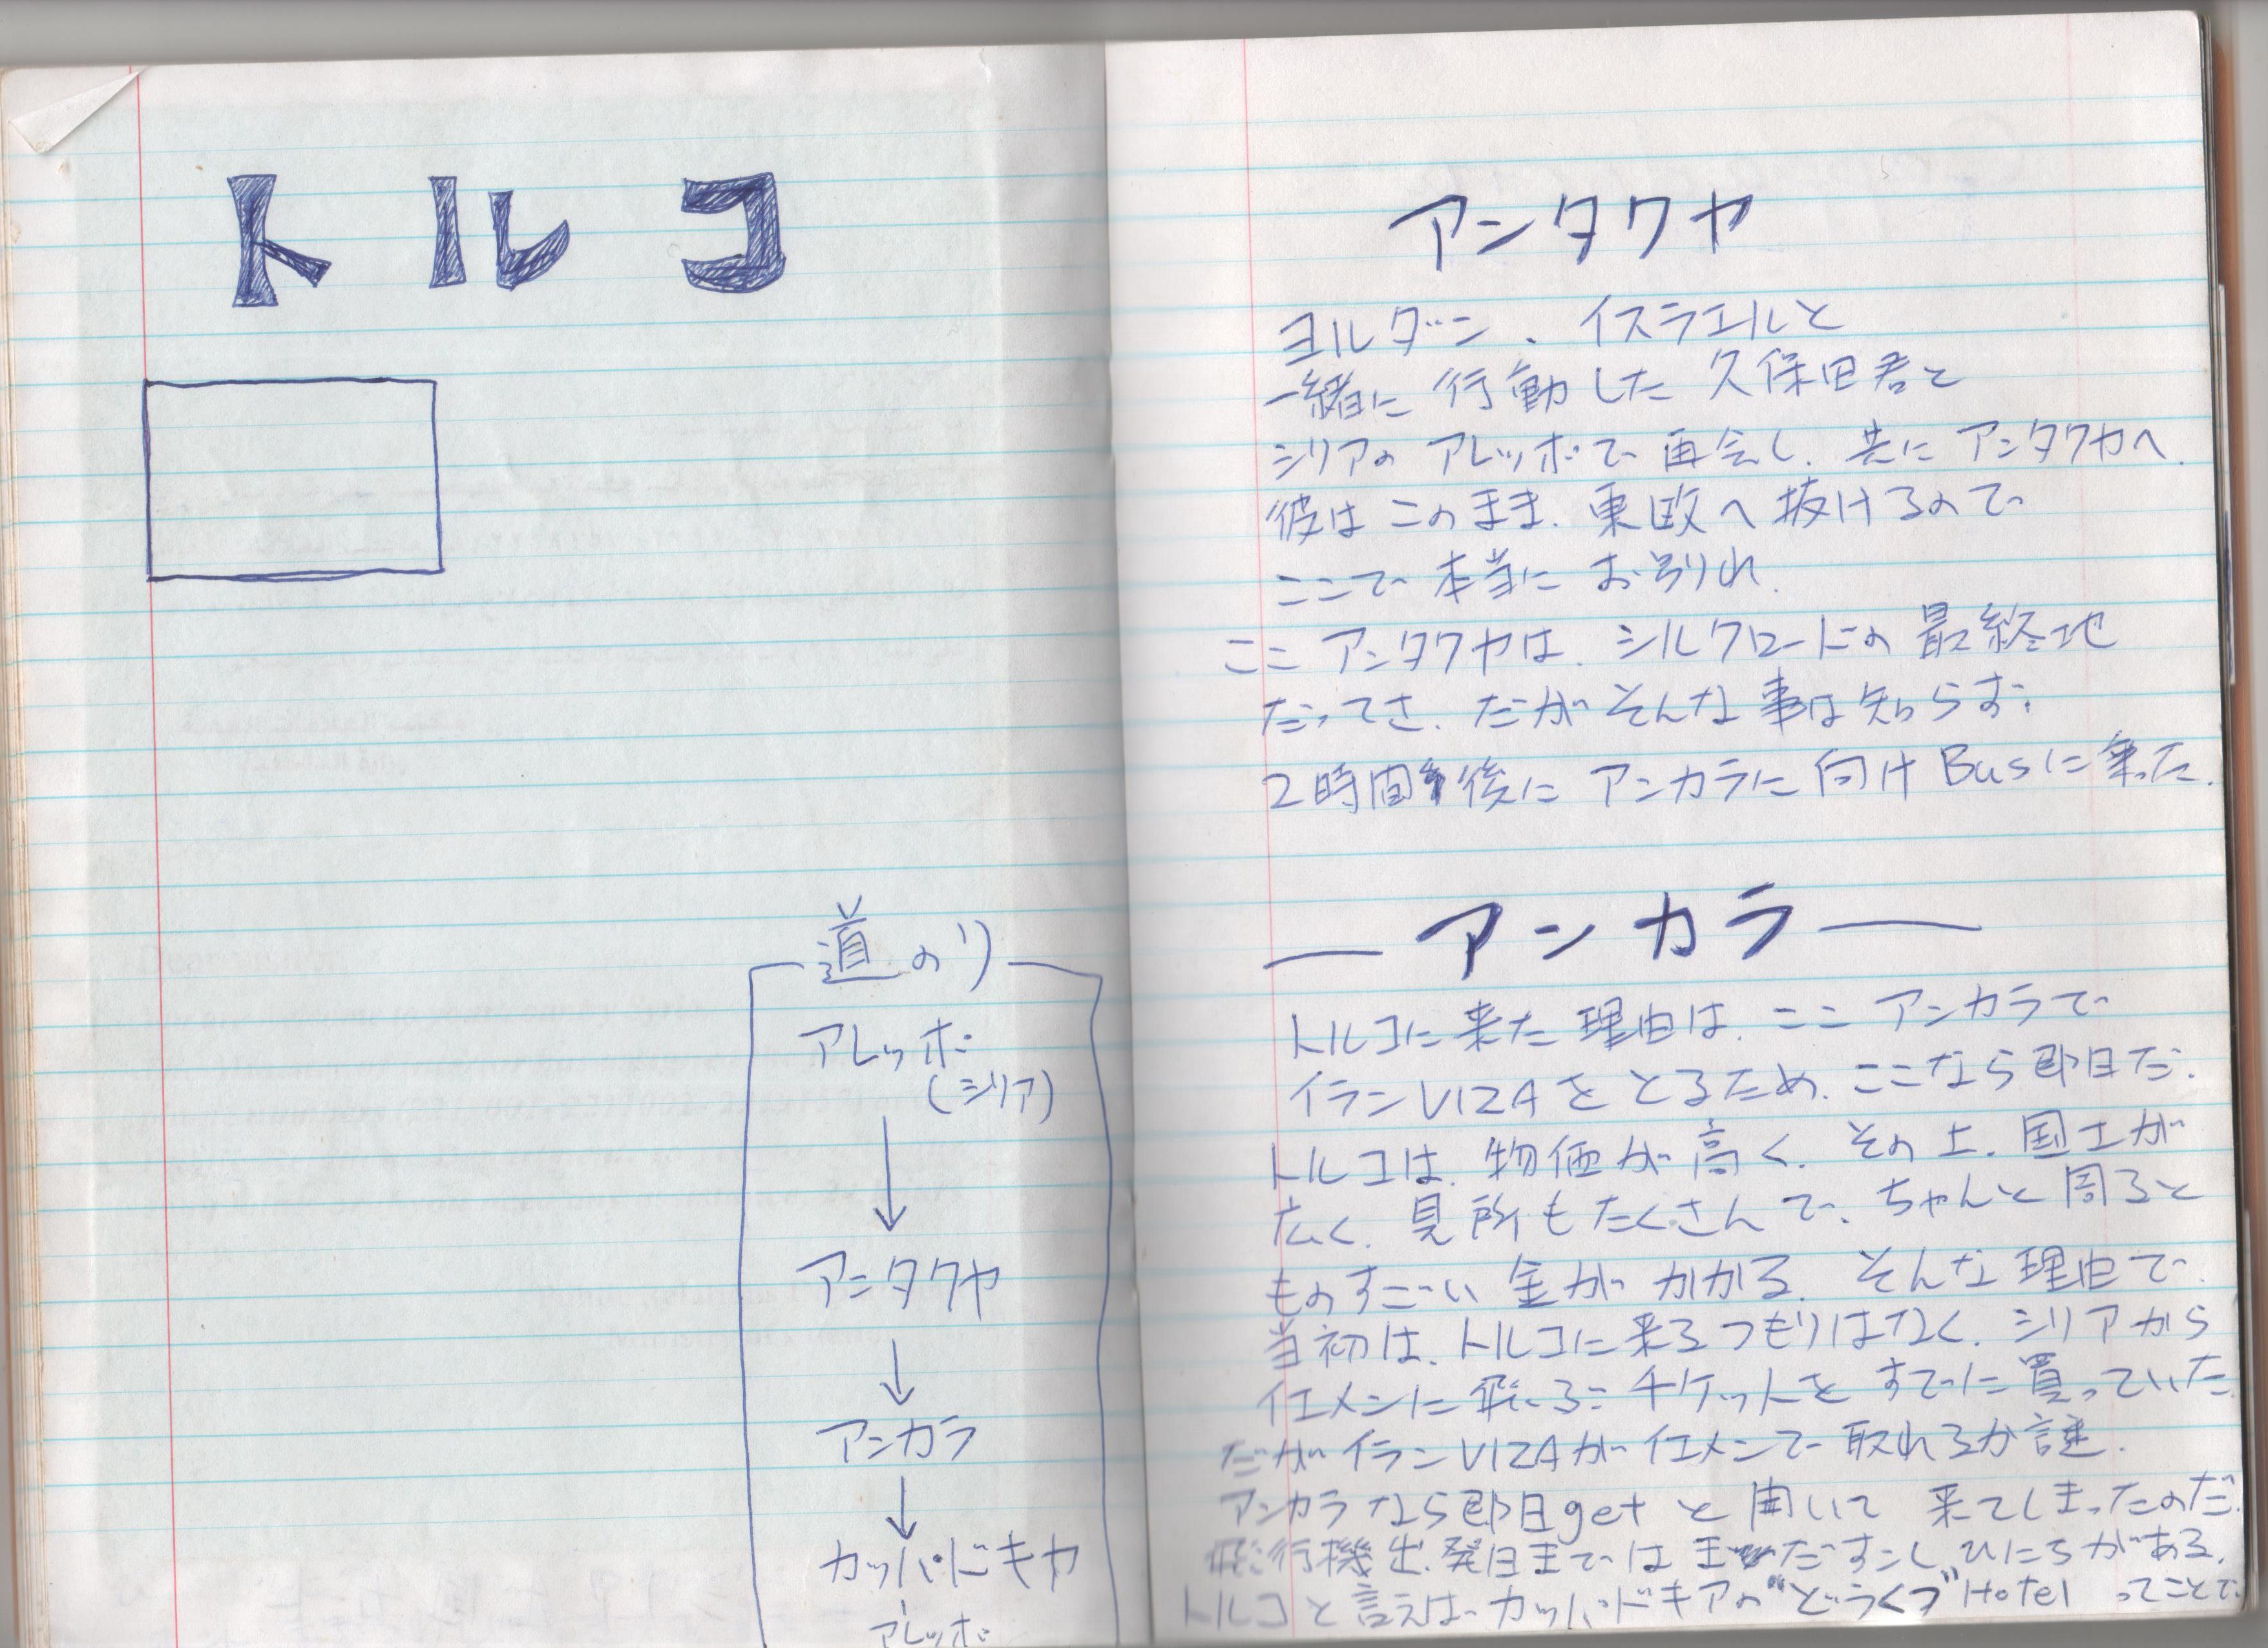 トルコ
道のり
アレッポ
(シリア)
↓
アンタクヤ
↓
アンカラ
↓
カッパドキヤ
アレッポ
アンタクヤ
ヨルダン、イスラエルと
一緒に行動した久保田君と
シリアのアレッポで再会し、共にアンタクヤへ.
彼はこのまま、東欧へ抜けるので
ここで本当にお別れ.
ここアンタクヤは、シルクロードの最終地
だってさ、だがそんな事は知らず、
2時間後にアンカラに向けBusに乗った.
アンカラ
トルコに来た理由は、ここアンカラで
イランVIZAをとるため、ここなら即日だ.
トルコは、物価が高く、その上、国土が
広く、見所もたくさんで、ちゃんと周ると
ものすごーい金がかかる. そんな理由で
当初は、トルコに来るつもりはなく、シリアから
イエメンに飛ぶチケットをすでに買っていた.
だがイランVIZAがイエメンで取れるか謎.
アンカラなら即日getと聞いて来てしまったのだ.
飛行機出発日まではまだすこしひにちがある.
トルコと言えば、カッパドキアの"どうくつ"Hotelってことで